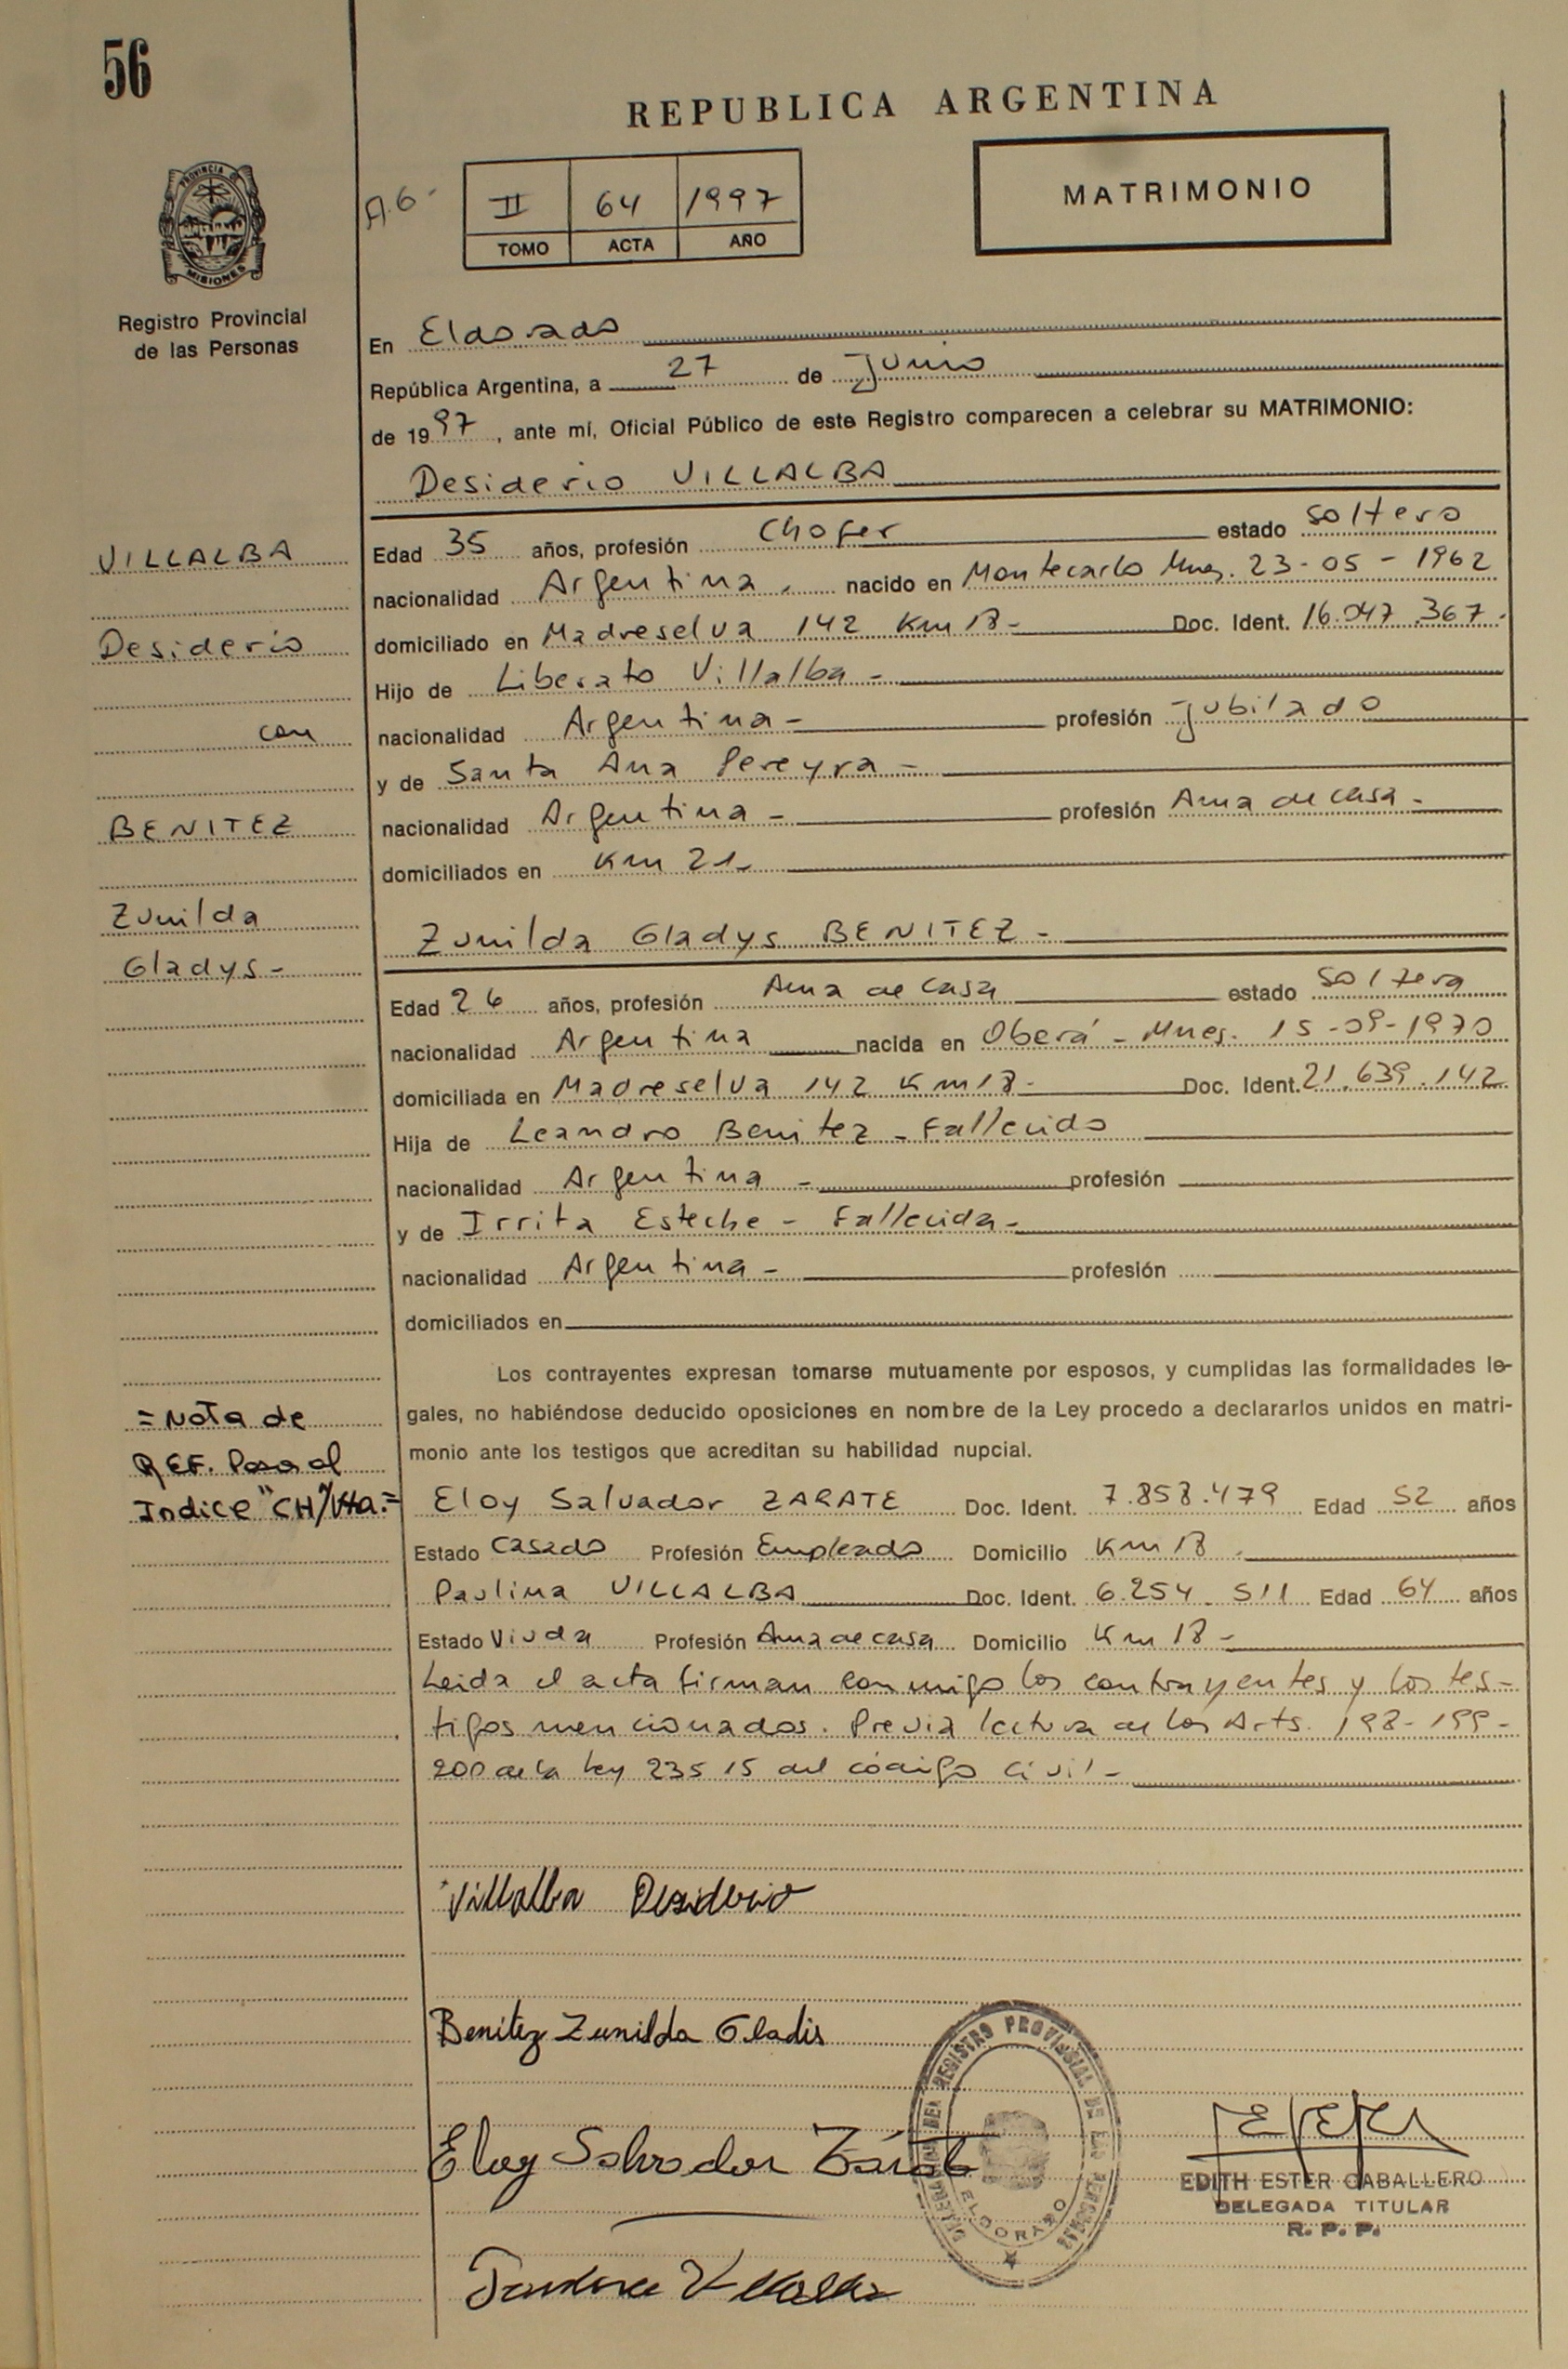 56
REPUBLICA ARGENTINA
A.6-
II 64 1997
TOMO ACTA AÑO
MATRIMONIO
PROVINCIA DE
MISIONES
Registro Provincial
de las Personas
En Eldorado
República Argentina, a 27 de Junio
de 1997, ante mí, Oficial Público de este Registro comparecen a celebrar su MATRIMONIO:
Desiderio VILLALBA
VILLALBA
Desiderio
con
BENITEZ
Zunilda
Gladys-
Edad 35 años, profesión Chofer estado Soltero
nacionalidad Argentina. nacido en Montecarlo Mnes. 23-05-1962
domiciliado en Madreselva 142 Km 18- Doc. Ident. 16.047.367.
Hijo de Liberato Villalba-
nacionalidad Argentina- profesión jubilado
y de Santa Ana Pereyra-
nacionalidad Argentina- profesión Ama de casa-
domiciliados en Km 21-
Zunilda Gladys BENITEZ-
Edad 26 años, profesión Ama de casa estado Soltera
nacionalidad Argentina nacida en Oberá-Mnes. 15-09-1970
domiciliada en Madreselva 142 Km 18- Doc. Ident. 21.639.142
Hija de Leandro Benitez-Fallecido
nacionalidad Argentina- profesión
y de Irrita Esteche-Fallecida-
nacionalidad Argentina- profesión
domiciliados en
Los contrayentes expresan tomarse mutuamente por esposos, y cumplidas las formalidades le-
gales, no habiéndose deducido oposiciones en nombre de la Ley procedo a declararlos unidos en matri-
monio ante los testigos que acreditan su habilidad nupcial.
=Nota de
REF. Pasa al
Indice "CH"
Eloy Salvador ZARATE Doc. Ident. 7.858.479 Edad 52 años
Estado Casado Profesión Empleado Domicilio Km 18.
Paulina VILLALBA Doc. Ident. 6.254.511 Edad 64 años
Estado Viuda Profesión Ama de casa Domicilio Km 18-
Leida el acta firman conmigo los contrayentes y los tes-
tigos mencionados. Previa lectura de los Arts. 198-199-
200 de la ley 23515 del código civil-
Villalba Desiderio
Benitez Zunilda Gladis
Eloy Salvador Zárate
Villalba
REGISTRO PROVINCIAL DE LAS PERSONAS
ELDORADO
EDITH ESTER CABALLERO
DELEGADA TITULAR
R. P. P.